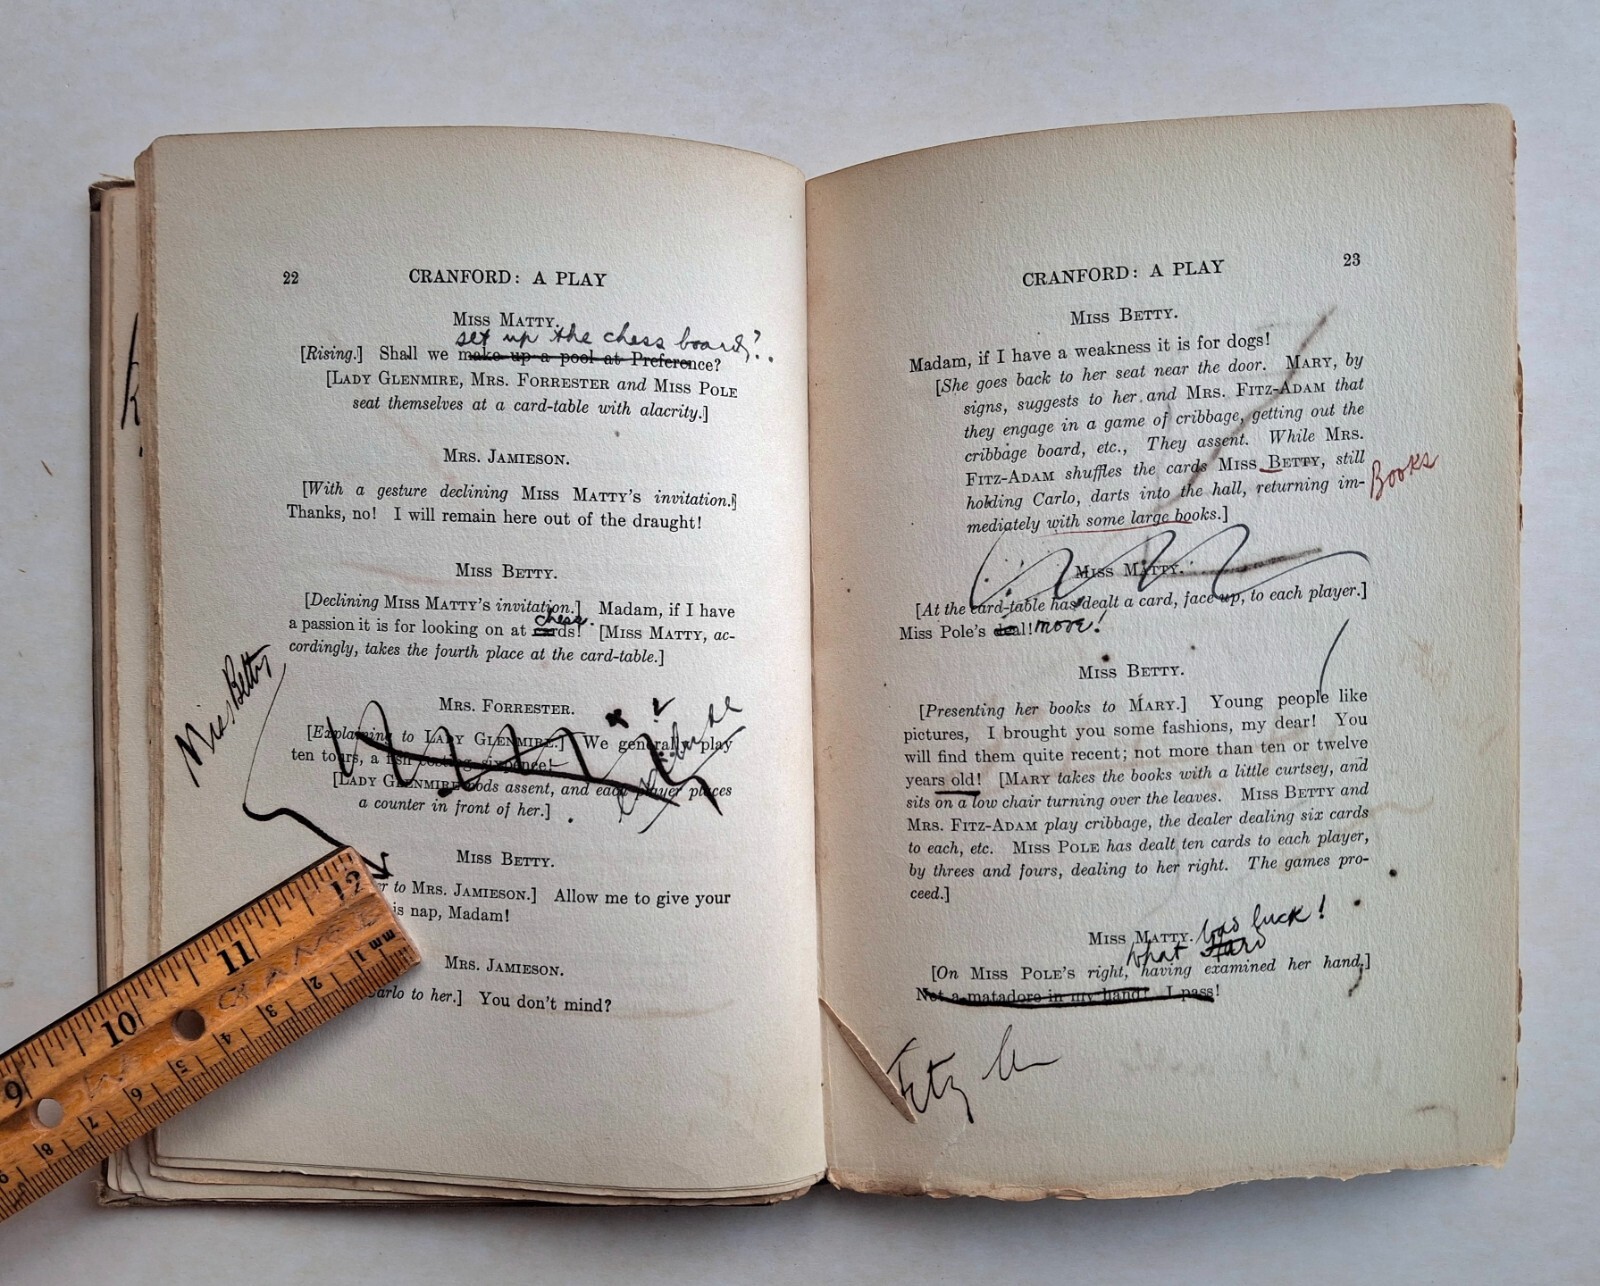 22
CRANFORD: A PLAY
MISS MATTY.
set up the chess board?.
[Rising.] Shall we make up a pool at Preference?
[LADY GLENMIRE, MRS. FORRESTER and MISS POLE
seat themselves at a card-table with alacrity.]
MRS. JAMIESON.
[With a gesture declining MISS MATTY'S invitation.]
Thanks, no! I will remain here out of the draught!
MISS BETTY.
[Declining MISS MATTY'S invitation.] Madam, if I have
chess.
a passion it is for looking on at cards! [MISS MATTY, ac-
cordingly, takes the fourth place at the card-table.]
Miss Betty
MRS. FORRESTER.
[Explaining to LADY GLENMIRE.] We generally play
ten tours, a fish costing sixpence!
[LADY GLENMIRE nods assent, and each player places
a counter in front of her.]
MISS BETTY.
to MRS. JAMIESON.] Allow me to give your
is nap, Madam!
MRS. JAMIESON.
Carlo to her.] You don't mind?
9 10 11 12
mm 1 2 3 4 5 6 7 8 9
23
CRANFORD: A PLAY
MISS BETTY.
Madam, if I have a weakness it is for dogs!
[She goes back to her seat near the door. MARY, by
signs, suggests to her and MRS. FITZ-ADAM that
they engage in a game of cribbage, getting out the
cribbage board, etc., They assent. While MRS.
FITZ-ADAM shuffles the cards MISS BETTY, still
holding Carlo, darts into the hall, returning im-
mediately with some large books.]
Books
MISS MATTY.
[At the card-table has dealt a card, face up, to each player.]
Miss Pole's deal! move!
MISS BETTY.
[Presenting her books to MARY.] Young people like
pictures, I brought you some fashions, my dear! You
will find them quite recent; not more than ten or twelve
years old! [MARY takes the books with a little curtsey, and
sits on a low chair turning over the leaves. MISS BETTY and
MRS. FITZ-ADAM play cribbage, the dealer dealing six cards
to each, etc. MISS POLE has dealt ten cards to each player,
by threes and fours, dealing to her right. The games pro-
ceed.]
MISS MATTY. bad luck!
what hard
[On MISS POLE'S right, having examined her hand.]
Not a matadore in my hand! I pass!